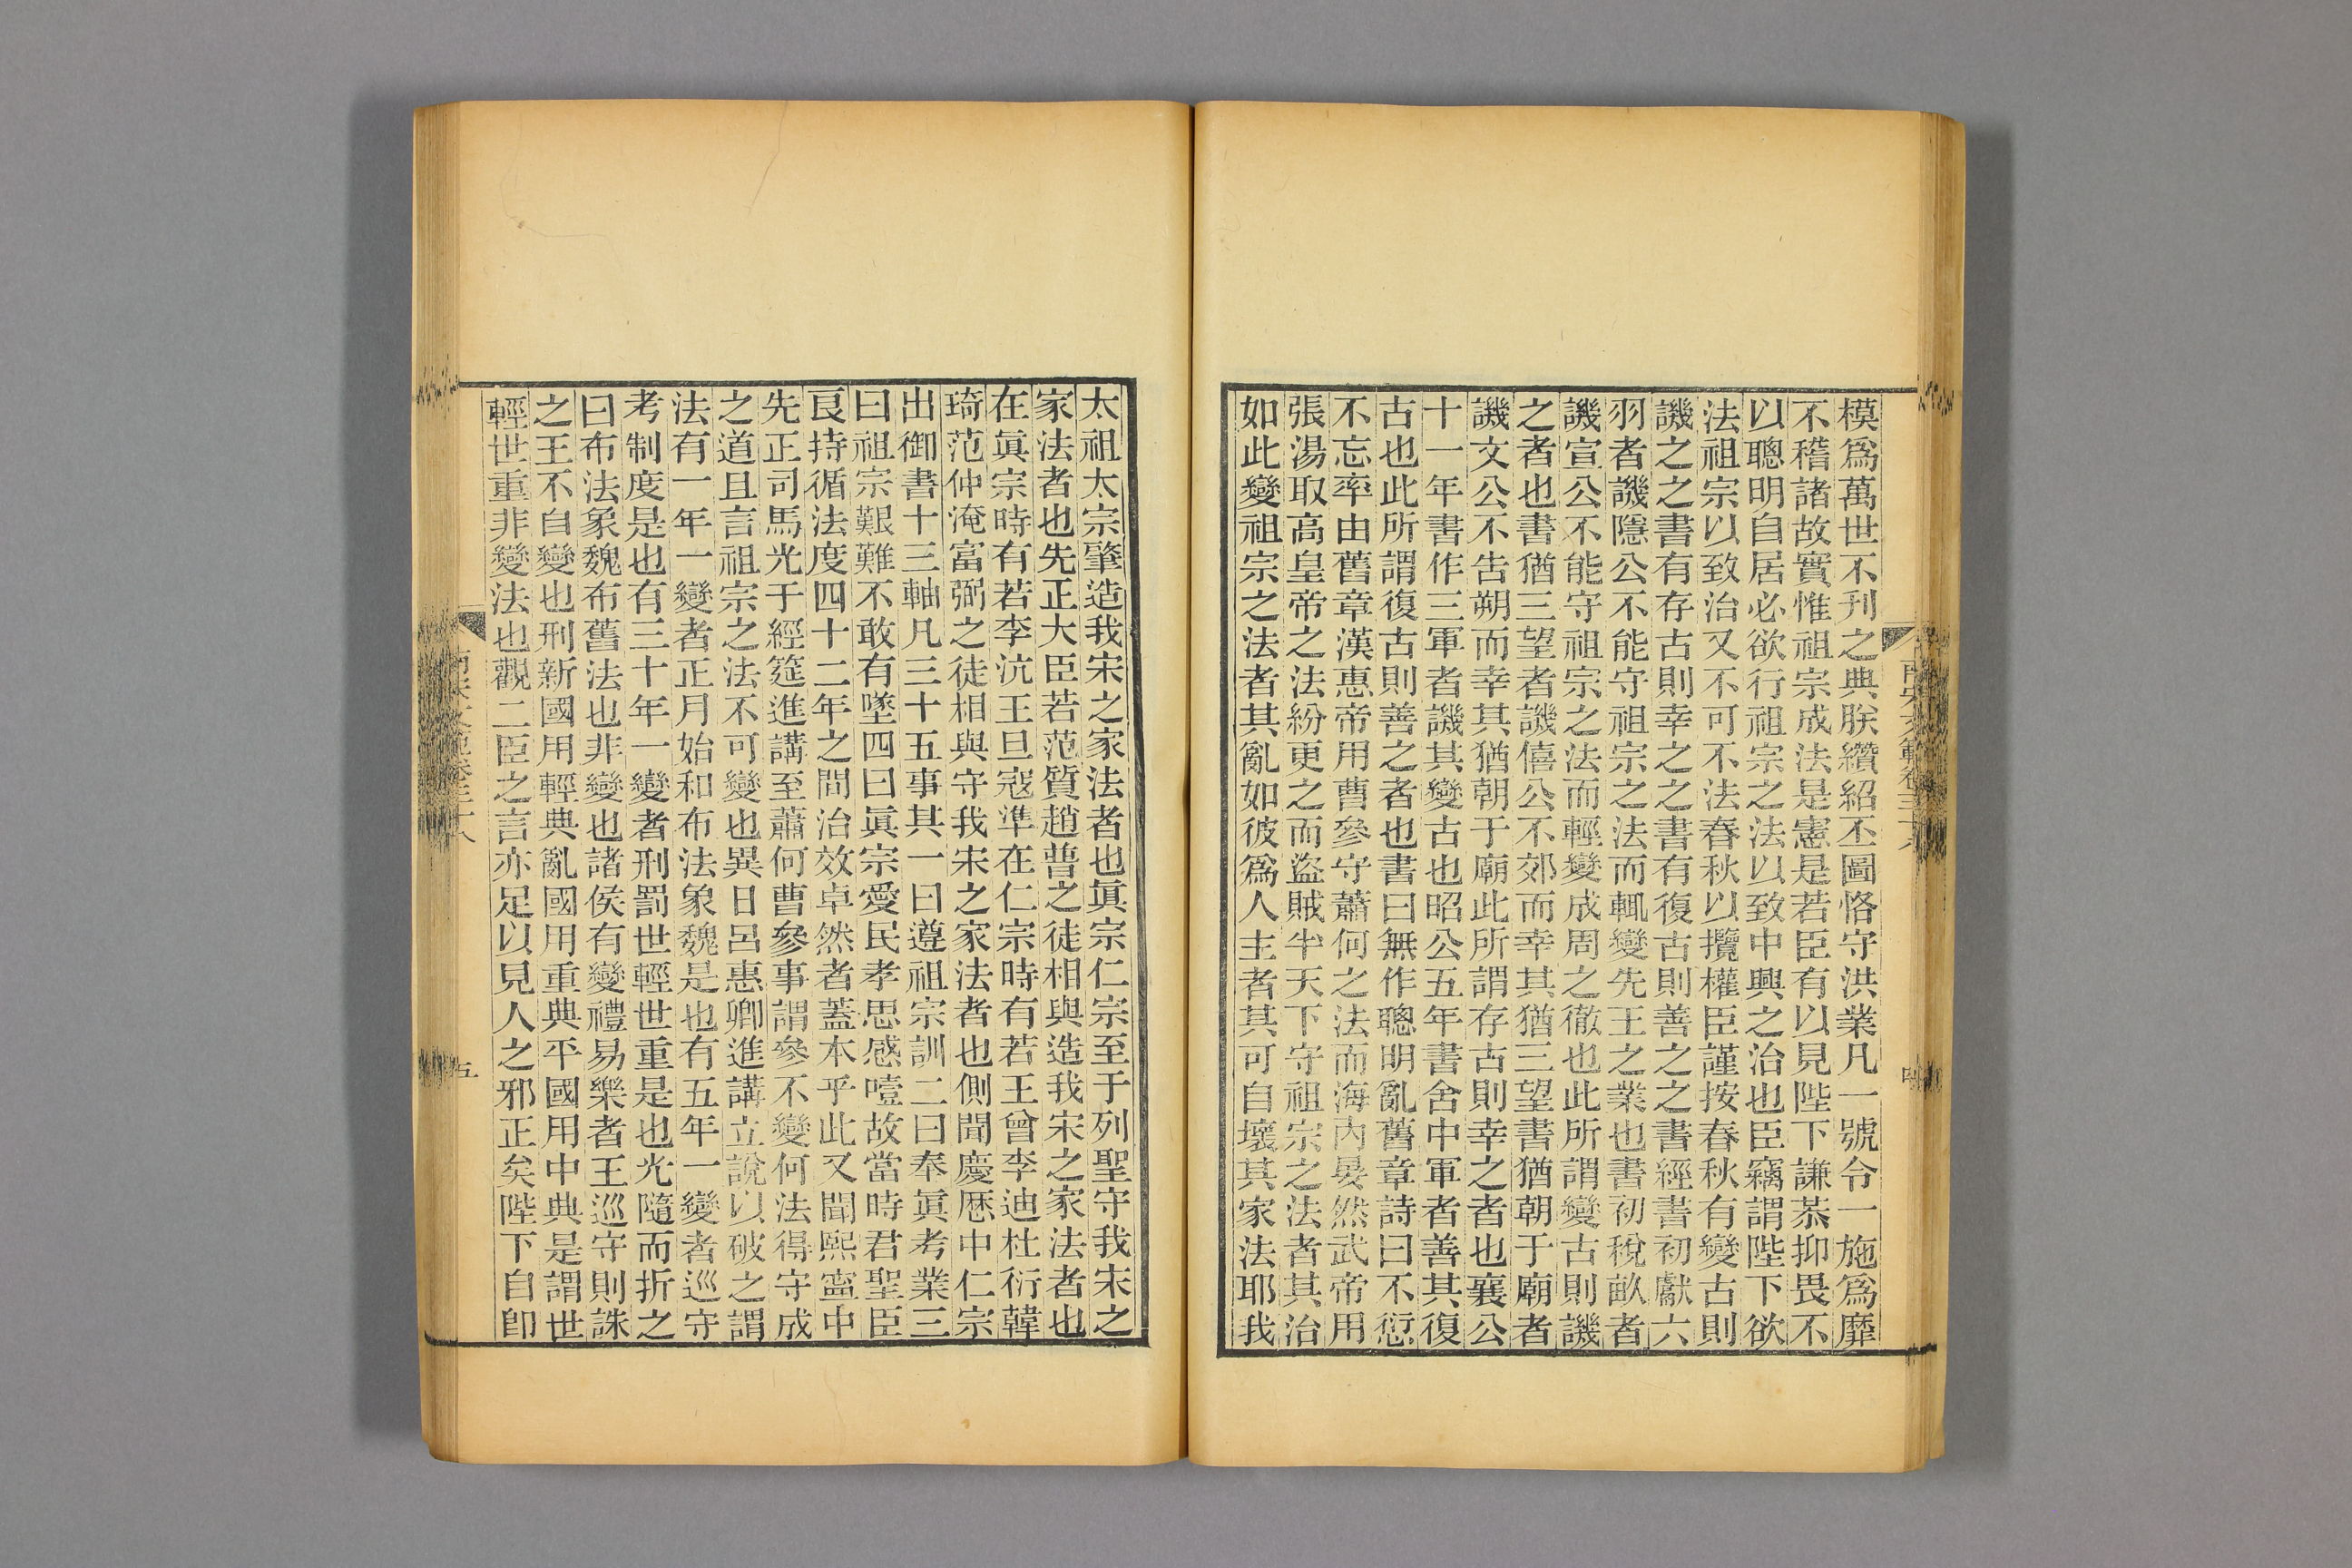 模爲萬世不刊之典朕纘紹丕圖恪守洪業凡一號令一施爲靡
不稽諸故實惟祖宗成法是憲是若臣有以見陛下謙恭抑畏不
以聰明自居必欲行祖宗之法以致中興之治也臣竊謂陛下欲
法祖宗以致治又不可不法春秋以攬權臣謹按春秋有變古則
譏之之書有存古則幸之之書有復古則善之之書經書初獻六
羽者譏隱公不能守祖宗之法而輒變先王之業也書初稅畝者
譏宣公不能守祖宗之法而輕變成周之徹也此所謂變古則譏
之者也書猶三望者譏僖公不郊而幸其猶三望書猶朝于廟者
譏文公不告朔而幸其猶朝于廟此所謂存古則幸之者也襄公
十一年書作三軍者譏其變古也昭公五年書舍中軍者善其復
古也此所謂復古則善之者也書曰無作聰明亂舊章詩曰不愆
不忘率由舊章漢惠帝用曹參守蕭何之法而海內晏然武帝用
張湯取高皇帝之法紛更之而盜賊半天下守祖宗之法者其治
如此變祖宗之法者其亂如彼爲人主者其可自壞其家法耶我
太祖太宗肇造我宋之家法者也眞宗仁宗至于列聖守我宋之
家法者也先正大臣若范質趙普之徒相與造我宋之家法者也
在眞宗時有若李沆王旦寇準在仁宗時有若王曾李迪杜衍韓
琦范仲淹富弼之徒相與守我宋之家法者也側聞慶厯中仁宗
出御書十三軸凡三十五事其一曰遵祖宗訓二曰奉眞考業三
曰祖宗艱難不敢有墜四曰眞宗愛民孝思感噎故當時君聖臣
良持循法度四十二年之間治效卓然者蓋本乎此又聞熙寧中
先正司馬光于經筵進講至蕭何曹參事謂參不變何法得守成
之道且言祖宗之法不可變也異日呂惠卿進講立說以破之謂
法有一年一變者正月始和布法象魏是也有五年一變者巡守
考制度是也有三十年一變者刑罰世輕世重是也光隨而折之
曰布法象魏布舊法也非變也諸侯有變禮易樂者王巡守則誅
之王不自變也刑新國用輕典亂國用重典平國用中典是謂世
輕世重非變法也觀二臣之言亦足以見人之邪正矣陛下自卽
五